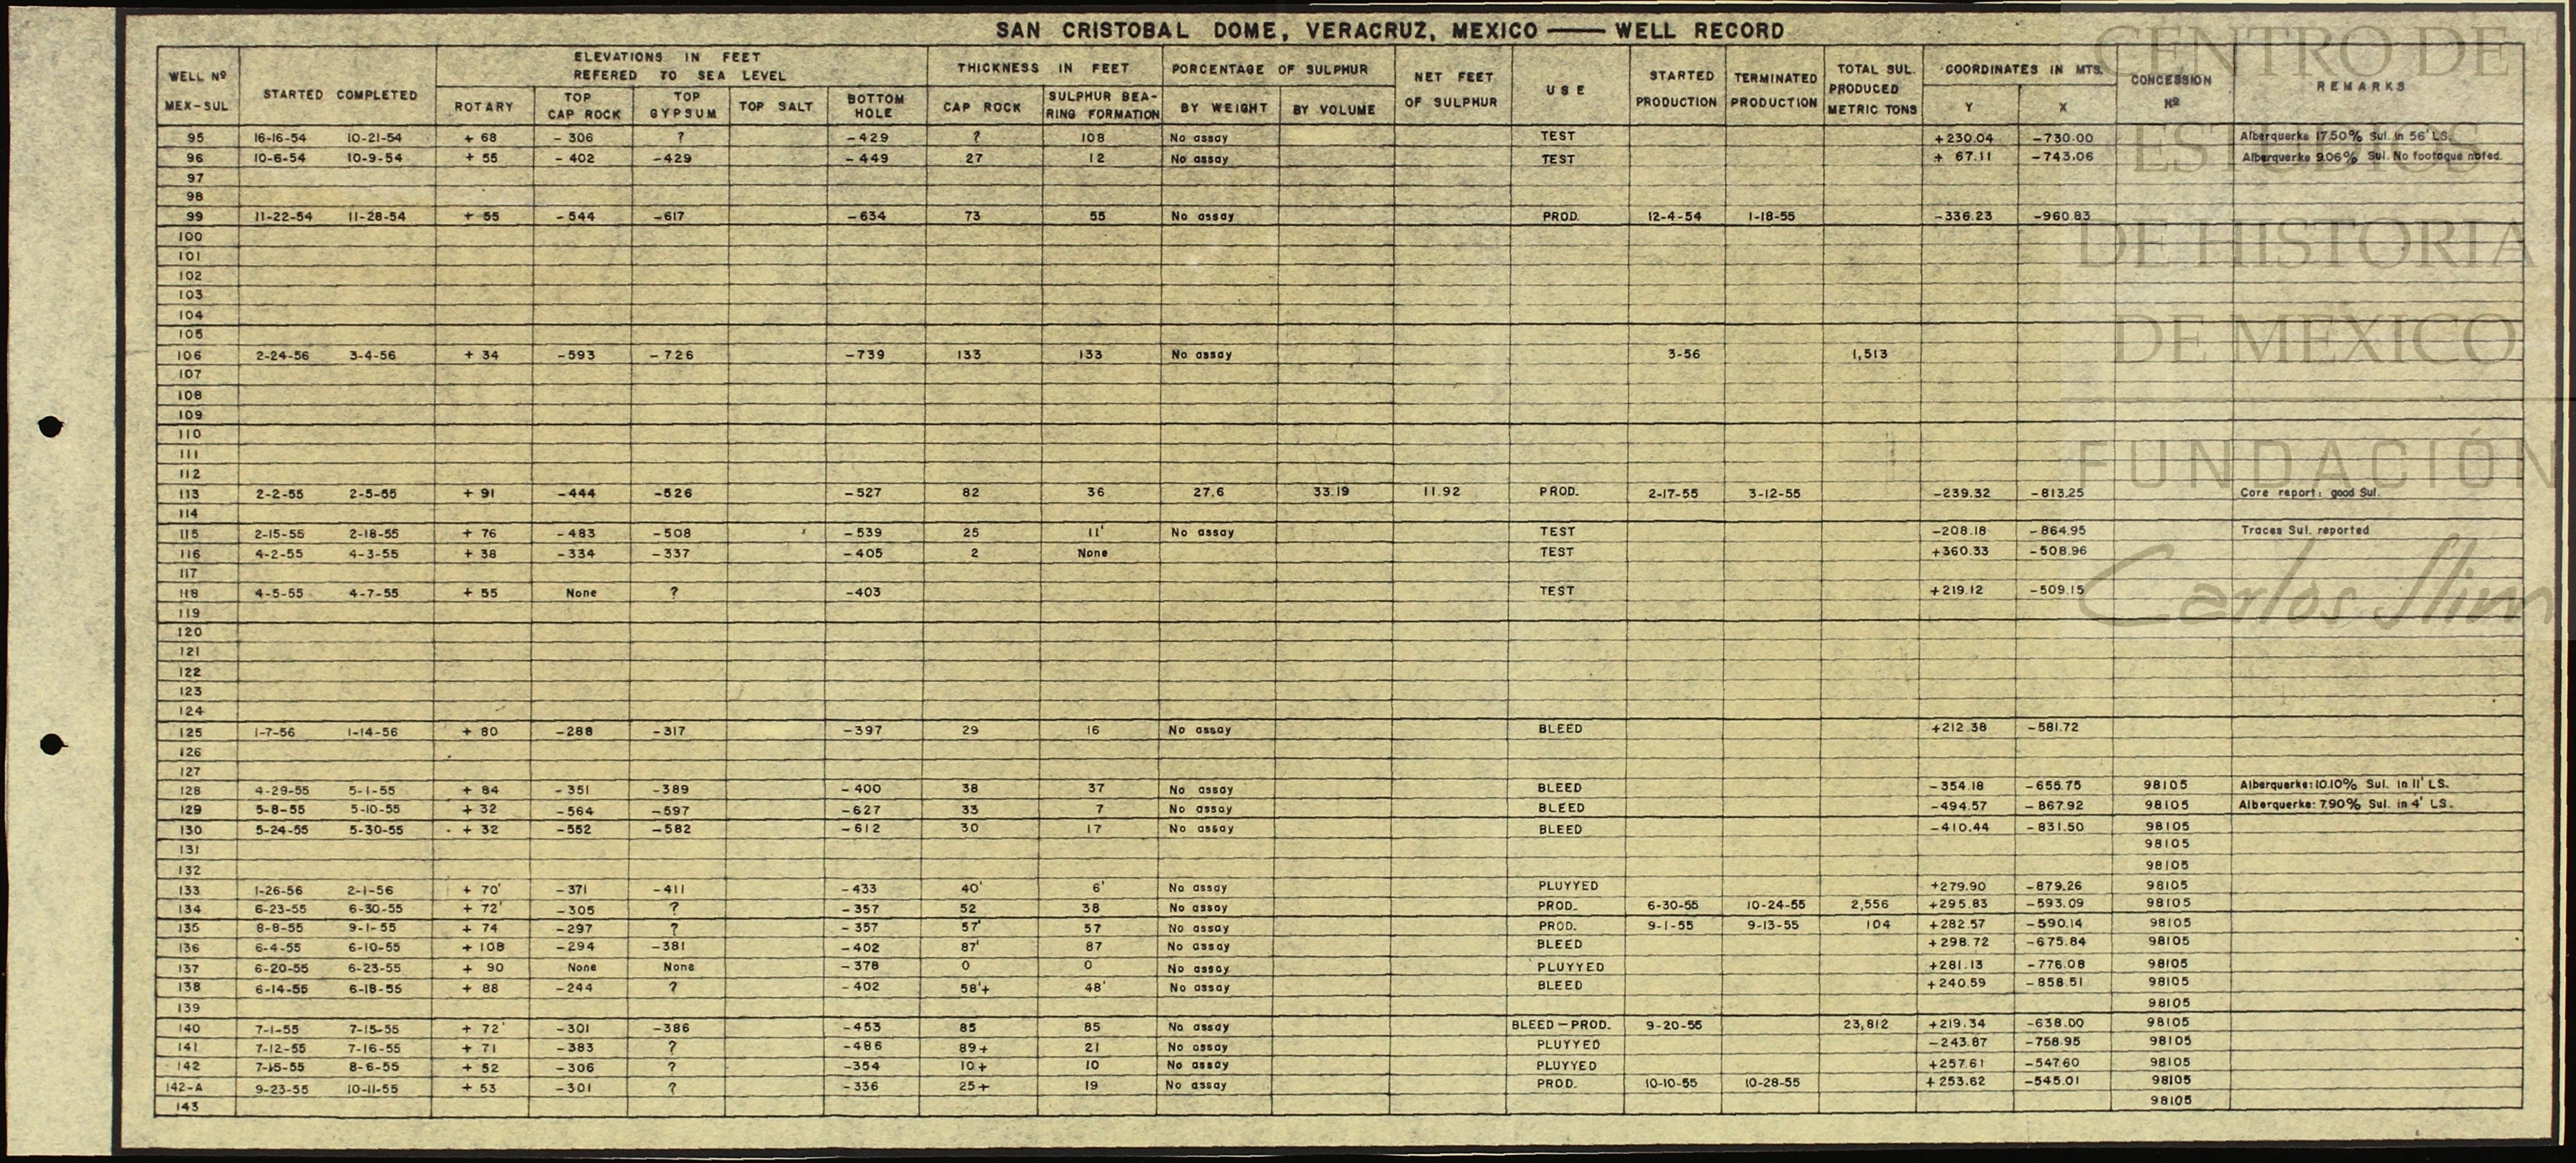 SAN CRISTOBAL DOME, VERACRUZ, MEXICO — WELL RECORD
WELL Nº MEX-SUL STARTED COMPLETED ELEVATIONS IN FEET REFERED TO SEA LEVEL THICKNESS IN FEET PORCENTAGE OF SULPHUR NET FEET OF SULPHUR USE STARTED PRODUCTION TERMINATED PRODUCTION TOTAL SUL. PRODUCED METRIC TONS COORDINATES IN MTS. CONCESSION Nº REMARKS
ROTARY TOP CAP ROCK TOP GYPSUM TOP SALT BOTTOM HOLE CAP ROCK SULPHUR BEA-RING FORMATION BY WEIGHT BY VOLUME Y X
95 16-16-54 10-21-54 + 68 - 306 ? -429 ? 108 No assay TEST +230.04 -730.00 Alberquerke 17.50% Sul. in 56' LS.
96 10-6-54 10-9-54 + 55 - 402 -429 - 449 27 12 No assay TEST + 67.11 -743.06 Alberquerke 9.06% Sul. No footague noted.
97
98
99 11-22-54 11-28-54 + 55 - 544 -617 -634 73 55 No assay PROD. 12-4-54 1-18-55 -336.23 -960.83
100
101
102
103
104
105
106 2-24-56 3-4-56 + 34 -593 -726 -739 133 133 No assay 3-56 1,513
107
108
109
110
111
112
113 2-2-55 2-5-55 + 91 -444 -526 -527 82 36 27.6 33.19 11.92 PROD. 2-17-55 3-12-55 -239.32 -813.25 Core report: good Sul.
114
115 2-15-55 2-18-55 + 76 -483 -508 -539 25 11' No assay TEST -208.18 -864.95 Traces Sul. reported
116 4-2-55 4-3-55 + 38 -334 -337 -405 2 None TEST +360.33 -508.96
117
118 4-5-55 4-7-55 + 55 None ? -403 TEST +219.12 -509.15
119
120
121
122
123
124
125 1-7-56 1-14-56 + 80 -288 -317 -397 29 16 No assay BLEED +212.38 -581.72
126
127
128 4-29-55 5-1-55 + 84 -351 -389 -400 38 37 No assay BLEED -354.18 -655.75 98105 Alberquerke: 10.10% Sul. in 11' LS.
129 5-8-55 5-10-55 + 32 -564 -597 -627 33 7 No assay BLEED -494.57 -867.92 98105 Alberquerke: 7.90% Sul. in 4' LS.
130 5-24-55 5-30-55 + 32 -552 -582 -612 30 17 No assay BLEED -410.44 -831.50 98105
131 98105
132 98105
133 1-26-56 2-1-56 + 70' -371 -411 -433 40' 6' No assay PLUYYED +279.90 -879.26 98105
134 6-23-55 6-30-55 + 72' -305 ? -357 52 38 No assay PROD. 6-30-55 10-24-55 2,556 +295.83 -593.09 98105
135 8-8-55 9-1-55 + 74 -297 ? -357 57' 57 No assay PROD. 9-1-55 9-13-55 104 +282.57 -590.14 98105
136 6-4-55 6-10-55 + 108 -294 -381 -402 87' 87 No assay BLEED +298.72 -675.84 98105
137 6-20-55 6-23-55 + 90 None None -378 0 0 No assay PLUYYED +281.13 -776.08 98105
138 6-14-55 6-18-55 + 88 -244 ? -402 58'+ 48' No assay BLEED +240.59 -858.51 98105
139 98105
140 7-1-55 7-15-55 + 72' -301 -386 -453 85 85 No assay BLEED-PROD. 9-20-55 23,812 +219.34 -638.00 98105
141 7-12-55 7-16-55 + 71 -383 ? -486 89+ 21 No assay PLUYYED -243.87 -758.95 98105
142 7-15-55 8-6-55 + 52 -306 ? -354 10+ 10 No assay PLUYYED +257.61 -547.60 98105
142-A 9-23-55 10-11-55 + 53 -301 ? -336 25+ 19 No assay PROD. 10-10-55 10-28-55 +253.62 -545.01 98105
143 98105
CENTRO DE
ESTUDIOS
DE HISTORIA
DE MEXICO
FUNDACIÓN
Carlos Slim